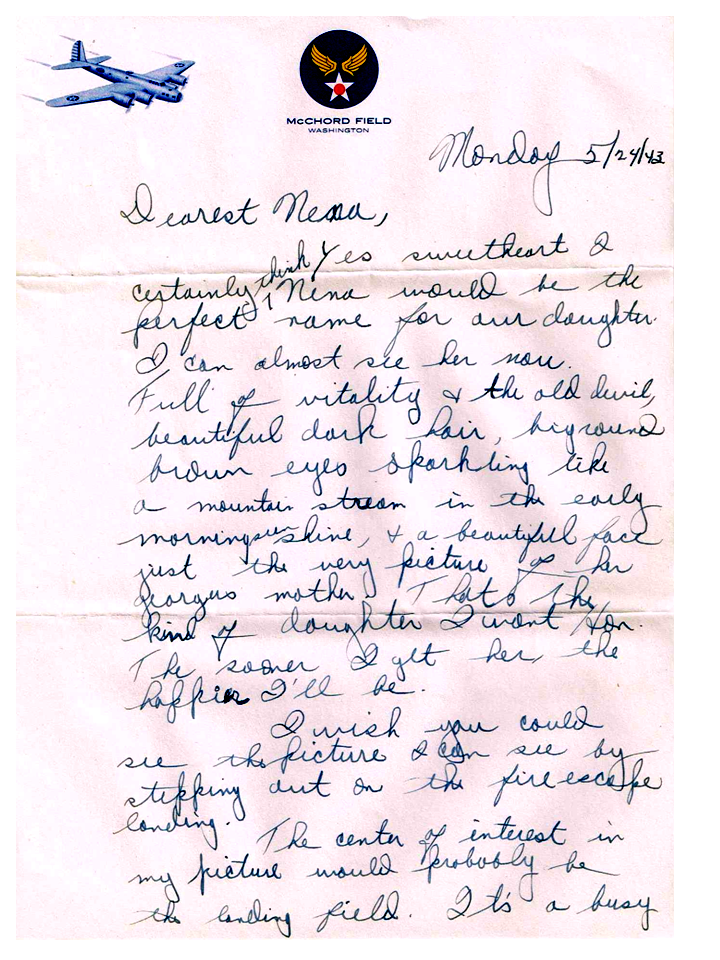 McCHORD FIELD
WASHINGTON
Monday 5/24/43
Dearest Nena,
Yes sweetheart I
certainly think Nena would be the
perfect name for our daughter.
I can almost see her now.
Full of vitality & the old devil,
beautiful dark hair, big round
brown eyes sparkling like
a mountain stream in the early
morning sun shine, & a beautiful face
just the very picture of her
georgus mother. That's the
kind of daughter I want Hon.
The sooner I get her, the
happier I'll be.
I wish you could
see the picture I can see by
stepping out on the fire escape
landing.
The center of interest in
my picture would probably be
the landing field. It's a busy